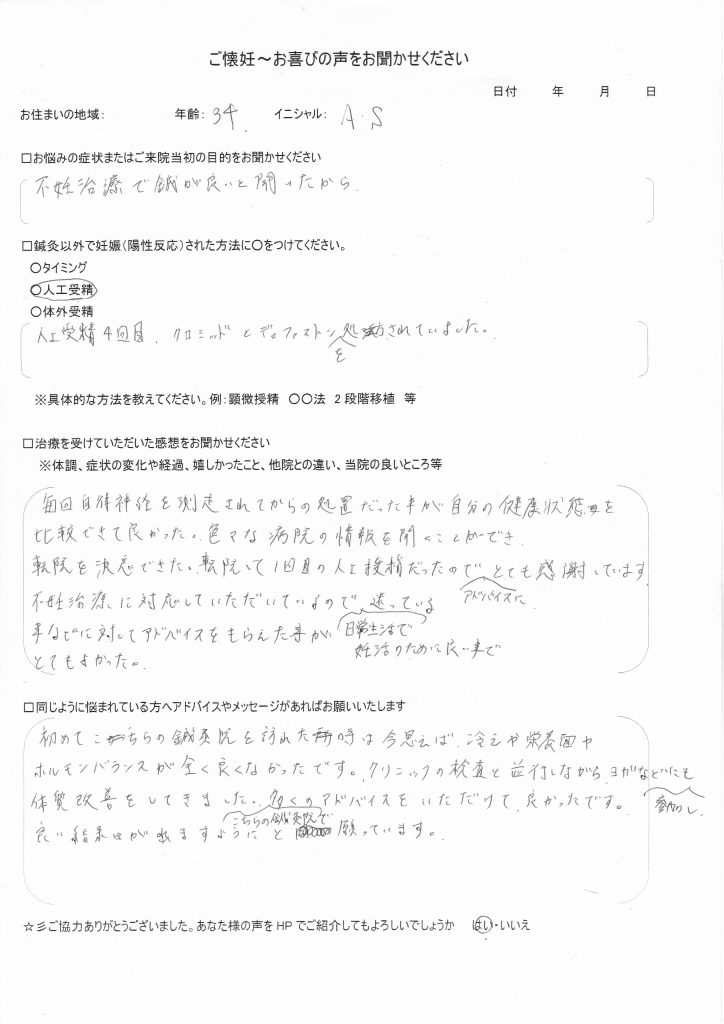 ご懐妊～お喜びの声をお聞かせください
日付 年 月 日
お住まいの地域： 年齢：34. イニシャル： A.S
□お悩みの症状またはご来院当初の目的をお聞かせください
不妊治療で鍼が良いと聞いたから.
□鍼灸以外で妊娠（陽性反応）された方法に○をつけてください。
○タイミング
○人工受精
○体外受精
人工受精4回目. クロミッドとデュファストンを処方されていました。
※具体的な方法を教えてください。例：顕微授精 ○○法 2段階移植 等
□治療を受けていただいた感想をお聞かせください
※体調、症状の変化や経過、嬉しかったこと、他院との違い、当院の良いところ等
毎回自律神経を測定されてからの処置だった事が自分の健康状態を
比較できて良かった。色々な病院の情報を聞くことができ
転院を決意できた。転院して1回目の人工授精だったのでアドバイスにとても感謝しています
不妊治療に対応していただいているので、迷っている
事などに対してアドバイスをもらえた事が日常生活で妊活のために良い事で
とてもよかった。
□同じように悩まれている方へアドバイスやメッセージがあればお願いいたします
初めてこちらの鍼灸院を訪れた時は今思えば、冷えや栄養面や
ホルモンバランスが全く良くなかったです。クリニックの検査と並行しながらヨガなどにも参加し、
体質改善をしてきました。こちらの鍼灸院で多くのアドバイスをいただけて良かったです。
良い結果がれますようにと願っています。
☆彡ご協力ありがとうございました。あなた様の声をHPでご紹介してもよろしいでしょうか はい・いいえ